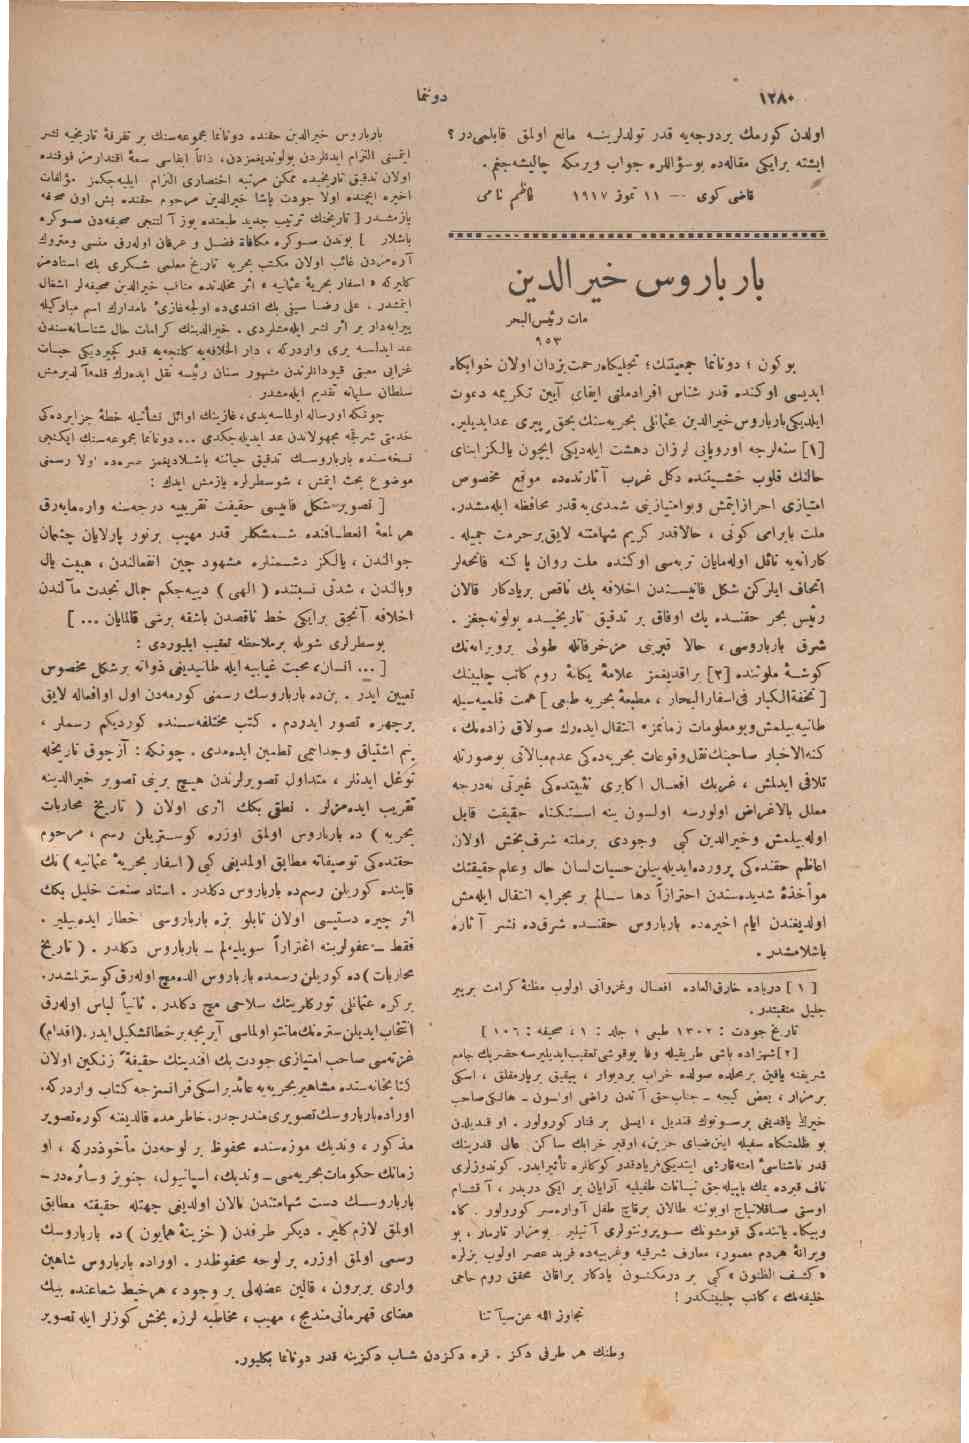 ١٢٨٠
دوننما
اولدن كورمك بردرجه‌يه قدر تولدلرينـه مانع اولمق قابلمی‌در ؟
ايشته برايكی مقاله‌ده بوسؤاللره جواب ويرمكه چاليشه‌جغم .
قاضی كوی — ١١ تموز ١٩١٧ كاظم نامی
بارباروس خيرالدين
مات رئيس‌البحر
٩٥٣
بو كون ؛ دوننما جمعيتنك ؛ تجليكاه رحمت يزدان اولان خوابكاه
ابديسی اوكنده قدر شناس افراد ملتی ايفای آيين تكريمه دعوت
ايلديكی بارباروس خيرالدين عثمانلی بحريه‌سنك بحق پيری عد ايديلير.
[١] سنه‌لرجه اوروپايی لرزان دهشت ايله‌ديكی ايچون يالكز ابنای
حالنك قلوب خشيتنده دكل غرب آثارنده‌ده موقع مخصوص
امتيازی احراز ايتمش و بو امتيازينی شمدی‌يه قدر محافظه ايله‌مشدر.
ملت بايرامی كونی ، حالا قدر كريم شهامتنه لايق بر حرمت جميله .
كارانه‌يه نائل اوله‌مايان تربه‌سی اوكنده ملت روان پاكنه فاتحه‌لر
اتحاف ايلركن شكل فانيسندن اخلافه پك ناقص بر يادكار قالان
رئيس بحر حقنده پك اوفاق بر تدقيق تاريخيده بولونه‌جغز .
شرق بارباروسی ، حالا قبرينی مزخرفاتله طولی بر ويرانه‌نك
كوشهٔ ملوثنده [٢] براقديغمز علامهٔ يكانهٔ روم كاتب چلبينك
[ تحفة‌الكبار فی اسفارالبحار ، مطبعهٔ بحريه طبعی ] همت قلميه‌سيله
طانيه‌بيلمش و بو معلومات زمانمزه انتقال ايده‌رك صولاق زاده‌نك ،
كنه‌الاخبار صاحبنك نقل وقوعات بحريه‌ده‌كی عدم مبالاتی بوصورتله
تلافی ايدلمش ، غربك افعال اكابری تثبيتده‌كی غيرتی نه‌درجه
معلل بالاغراض اولورسه اولسون ينه استكناه حقيقت قابل
اوله‌بيلمش و خيرالدين كبی وجودی بر ملته شرفبخش اولان
اعاظم حقنده‌كی پرورده ايديله‌بيلن حسيات لسان حال و علم حقيقتك
مؤاخذهٔ شديده‌سندن احترازاً دها سالم بر مجرايه انتقال ايله‌مش
اولديغندن ايام اخيره‌ده بارباروس حقنده شرقده نشر آثاره
باشلامشدر .
[ ١ ] درياده خارق‌العاده افعال و غزواتی اولوب مظنهٔ كرامت بر پير
جليل منقبتدر .
تاريخ جودت : ١٣٠٢ طبعی ؛ جلد : ١ ، صحيفه : ١٠٦ ]
[٢] شهزاده باشی طريقيله وفا يوقوشی تعقيب ايديليرسه حضربك جامع
شريفنه ياقين بر محلده صولده خراب بر ديوار ، بيقيق بر پارمقلق ، اسكی
بر مزار ، بعض كيجه — جناب حق آندن راضی اولسون — هانكی صاحب
خيرك ياقديغی بر سونوك قنديل ، ايسلی بر فنار كورولور . او قنديلدن
بو ظلمتكاه سفيله اينن ضيای حزين ، اوقبر خرابك ساكن عالی قدرينك
قدر ناشناسیٔ امته قارشی ايتديكی فرياد قدر كوكلره تأثير ايدر. كوندوزلری
ناف قبرده تك ياپيله‌جق نباتات طفيليه آرايان بر ايكی دربدر ، آقشام
اوستی صاقلانباج اويوننه طالان برقاچ طفل آواره‌سر كورولور . كاه
وبيكاه ياننده‌كی قومشونك سوپرونتولری آتيلير . بومزار تارمار ، بو
ويرانهٔ هردم معمور، معارف شرقيه و غربيه‌ده فريد عصر اولوب بزلره
« كشف الظنون » كبی بر در مكنون يادكار براقان محقق روم حاجی
خليفه‌نك ، كاتب چلبينكدر !
تجاوز الله عن سيآتنا
بارباروس خيرالدين حقنده دوننما مجموعه‌سنك بر تفرقهٔ تاريخيه نشر
ايتمسنی التزام ايدنلردن بولونديغمزدن، ذاتاً ايفاسی سعهٔ اقتدارمز فوقنده
اولان تدقيق تاريخيده ممكن مرتبه اختصاری التزام ايليه‌جكمز مؤلفات
اخيره ايچنده اولا جودت پاشا خيرالدين مرحوم حقنده بش اون صحيفه
يازمشدر [ تاريخنك ترتيب جديد طبعنده يوز آلتنجی صحيفه‌دن صوكره
باشلار ] بوندن صوكره مكافاة فضل و عرفان اوله‌رق منسی و متروك
آره‌مزدن غائب اولان مكتب بحريه تاريخ معلمی شكری بك استادمز
كليركه « اسفار بحريهٔ عثمانيه » اثر مخلدنده مناقب خيرالدين صحيفه‌لر اشغال
ايتمشدر . علی رضا سيفی بك افندی‌ده اولجه‌غازیٔ نامدارك اسم مباركيله
پيرايه‌دار بر اثر نشر ايله‌مشلردی . خيرالدينك كرامات حال شناسانه‌سندن
عد ايدلسه يری واردركه ، دار الخلافه‌يه كلنجه‌يه قدر كچيرديكی حيات
غزايی معيتی قپودانلرندن مشهور سنان رئيسه نقل ايده‌رك قلمه آلديرمش
سلطان سليمانه تقديم ايله‌مشدر .
چونكه اورساله اولماسه‌يدی، غازينك اوائل نشأتيله خطهٔ جزايرده‌كی
خدمتی شرقجه مجهولاتدن عد ايديله‌جكدی ... دوننما مجموعه‌سنك ايكنجی
نسخه‌سنده بارباروسك تدقيق حياتنه باشلاديغمز صره‌ده اولا رسمنی
موضوع بحث ايتمش ، شوسطرلره يازمش ايدك :
[ تصوير شكل فانيسی حقيقت تقريبيه درجه‌سنه وارمايه‌رق
هر لمعهٔ انعطافنده شمشكلر قدر مهيب برنور پارلايان چشمان
جوالندن ، يالكز دشمنلره مشهود چين انفعالندن ، هيبت يال
وبالندن ، شدتی نسبتنده ( الهی ) دييه‌جكم جمال نجدت مآلندن
اخلافه آنجق برايكی خط ناقصدن باشقه برشی قالمايان ... ]
بوسطرلری شويله برملاحظه تعقيب ايليوردی :
[ ... انسان، محبت غيابيه ايله طانيديغی ذواته برشكل مخصوص
تعيين ايدر . بن‌ده بارباروسك رسمنی كورمه‌دن اول اوافعاله لايق
برچهره تصور ايدردم . كتب مختلفه‌سنده كورديكم رسملر ،
بنم اشتياق وجدانيمی تطمين ايده‌مدی . چونكه : آز چوق تاريخله
توغل ايدنلر ، متداول تصويرلرندن هيچ برينی تصوير خيرالدينه
تقريب ايده‌مزلر . نطقی بكك اثری اولان ( تاريخ محاربات
بحريه ) ده بارباروس اولمق اوزره كوستريلن رسم ، مرحوم
حقنده‌كی توصيفاته مطابق اولمديغی كبی ( اسفار بحريهٔ عثمانيه ) نك
قابنده كوريلن رسم‌ده بارباروس دكلدر . استاد صنعت خليل بكك
اثر چيره دستيسی اولان تابلو بزه بارباروسی اخطار ايده‌بيلير .
فقط — عفولرينه اغتراراً سويليه‌لم — بارباروس دكلدر . ( تاريخ
محاربات ) ده كوريلن رسمده بارباروس الده مچ اوله‌رق كوسترلمشدر.
بركره عثمانلی توركلرينك سلاحی مچ دكلدر . ثانياً لباس اوله‌رق
انتخاب ايديلن ستره‌نك مانتو اولماسی آيريجه برخطا تشكيل ايدر. (اقدام)
غزته‌سی صاحب امتيازی جودت بك افندينك حقيقةً زنكين اولان
كتابخانه‌سنده مشاهير بحريه‌يه عائد بر اسكی فرانسزجه كتاب واردركه.
اوراده بارباروسك تصويری مندرجدر. خاطرمده قالديغنه كوره تصوير
مذكور ، ونديك موزه‌سنده محفوظ بر لوحه‌دن مأخوذدركه ، او
زمانك حكومات بحريه‌سی — ونديك، اسپانيول، جنويز وسائره‌در —
بارباروسك دست شهامتندن نالان اولديغی جهتله حقيقته مطابق
اولمق لازم كلير. ديكر طرفدن ( خزينهٔ همايون ) ده بارباروسك
رسمی اولمق اوزره بر لوحه محفوظدر. اوراده بارباروس شاهين
واری بربرون ، قالين عضله‌لی بر وجود ، هر خيط شعاعنده بيك
معنای قهرمانی مندمج ، مهيب ، مخاطبه لرزه بخش كوزلر ايله تصوير
وطنك هر طرفی دكز . قره دكزدن شاب دكزينه قدر دوننما بكليور.